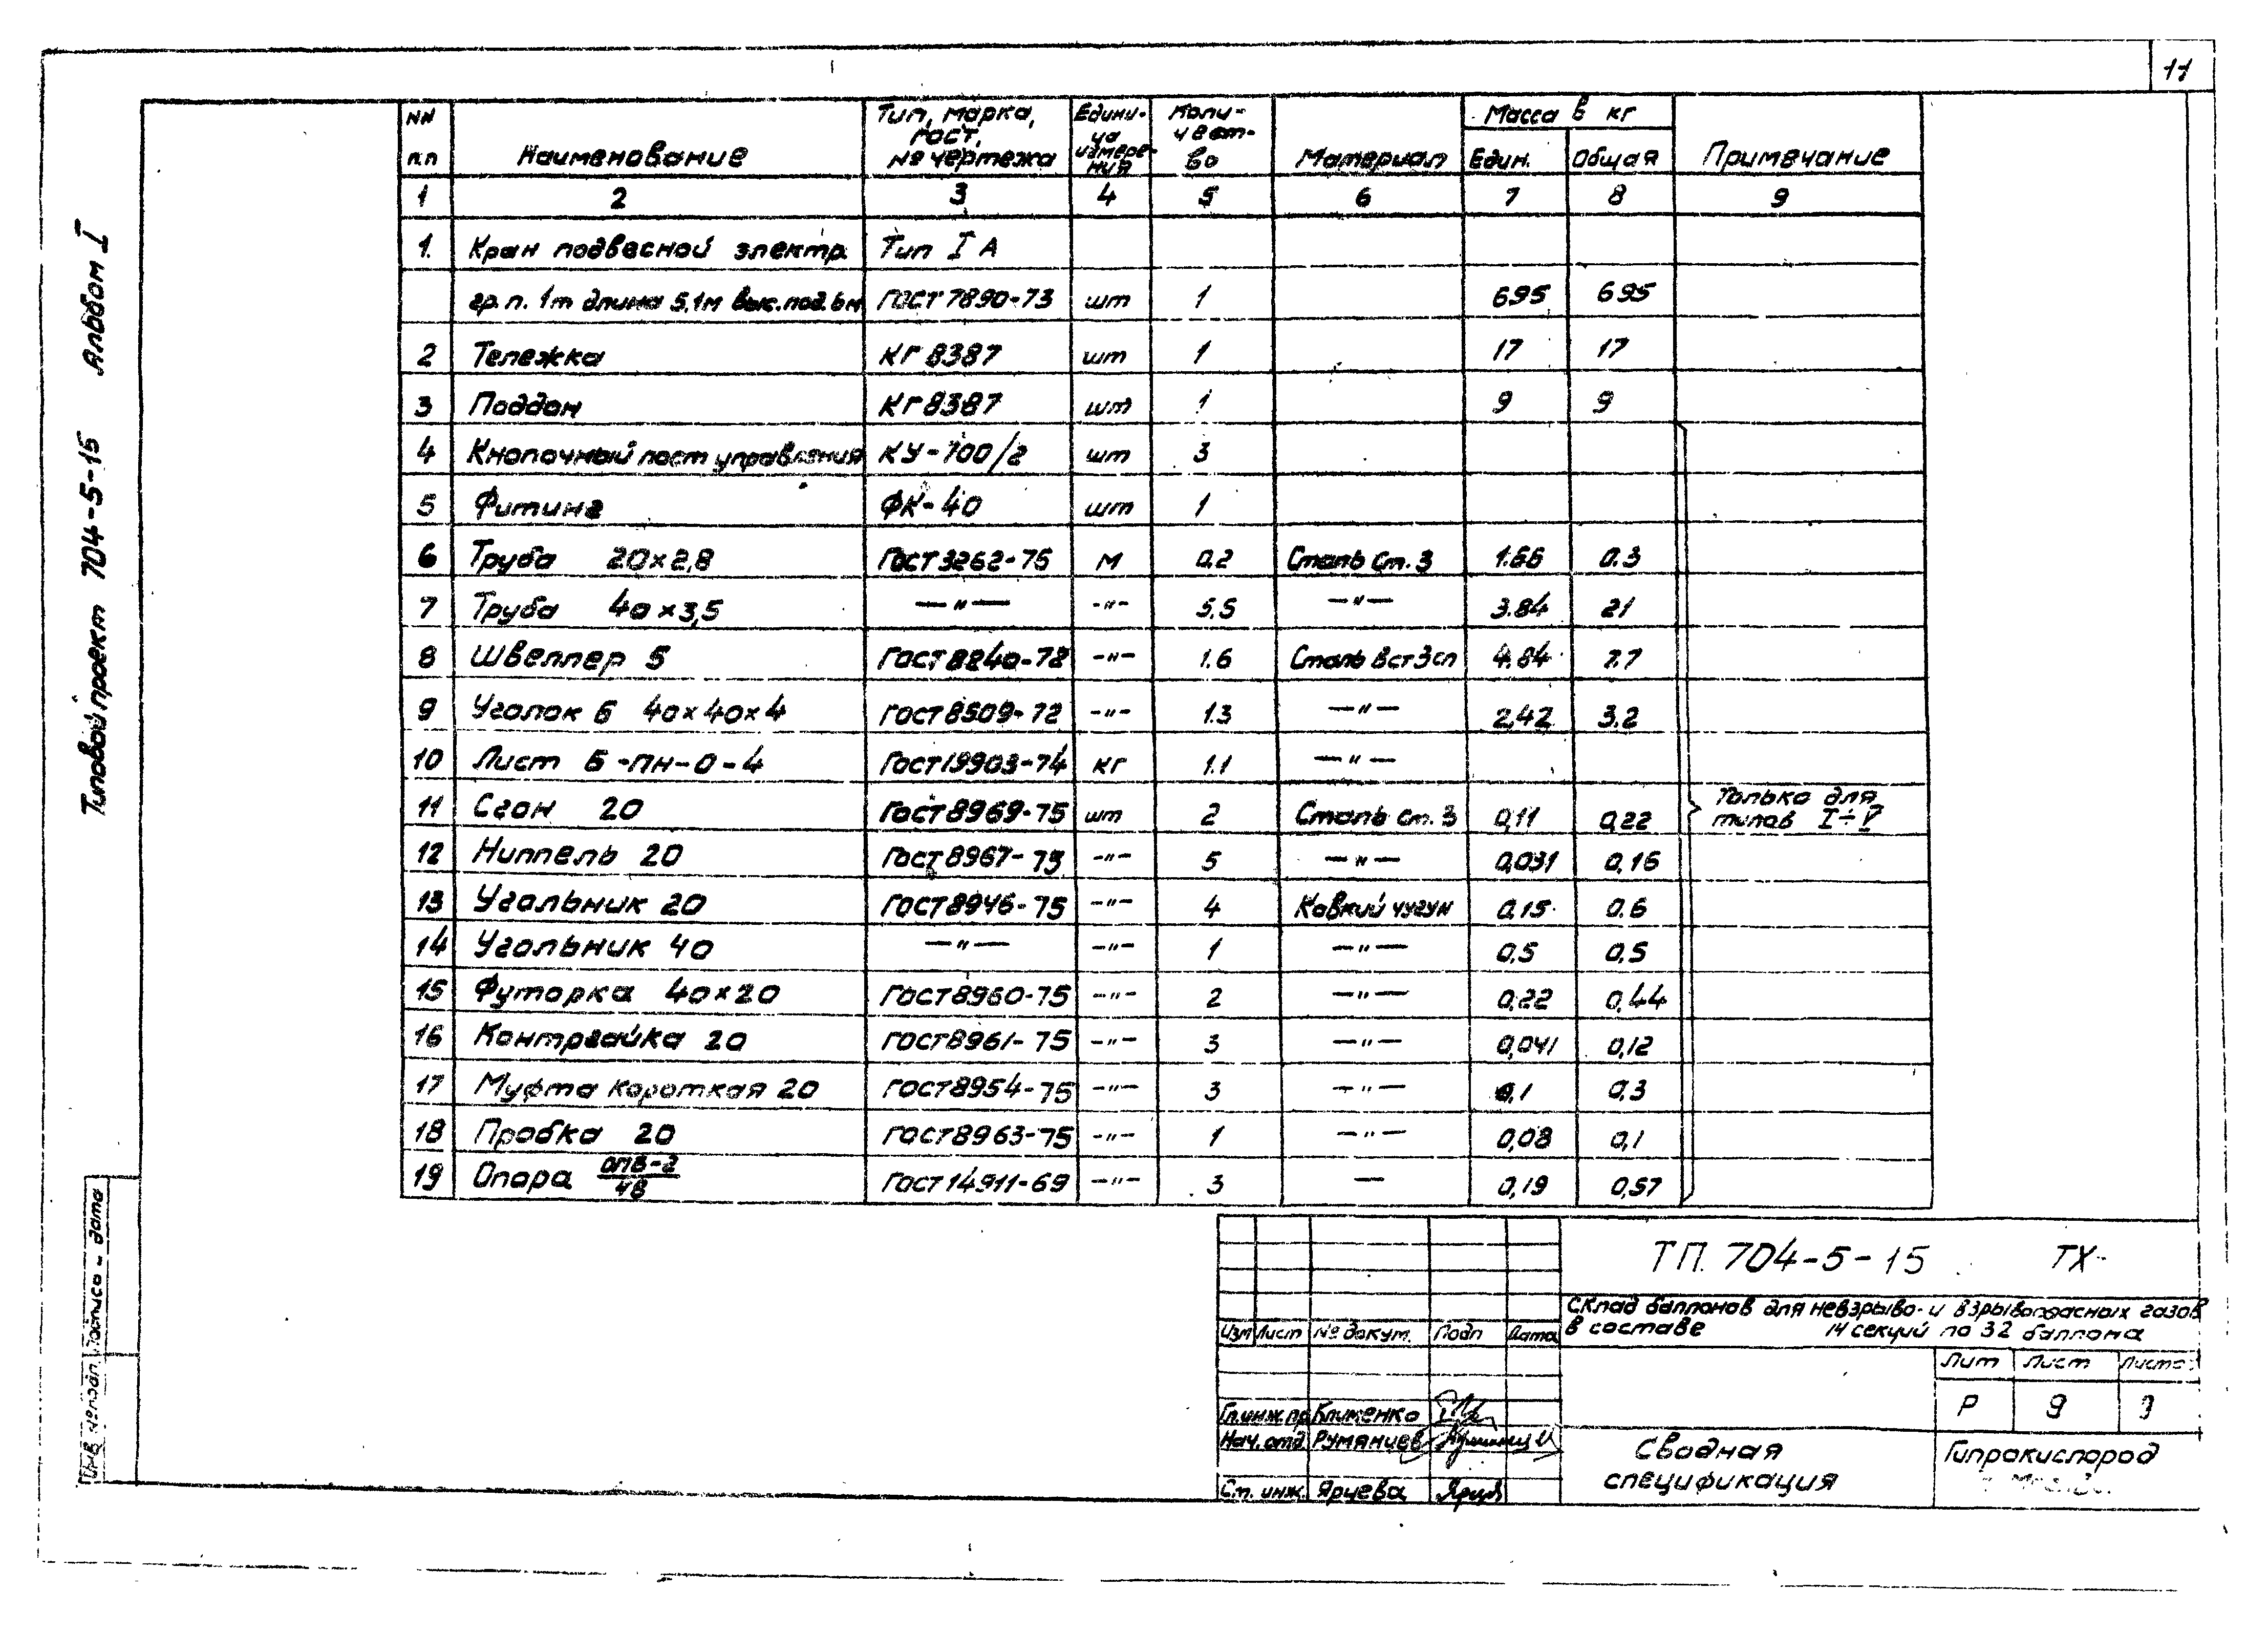 11
Типовой проект 704-5-15 Альбом I
NN пп | Наименование | Тип, марка, гост, № чертежа | Едини-ца измере-ния | Коли-чест-во | Материал | Масса в кг | Примечание
Един. | Общая
1 2 3 4 5 6 7 8 9
1. Кран подвесной электр. Тип I А
гр.п. 1т длина 5,1м выс.под.6м ГОСТ 7890-73 шт 1 695 695
2 Тележка КГ 8387 шт 1 17 17
3 Поддон КГ 8387 шт 1 9 9
4 Кнопочный пост управления КУ-700/2 шт 3
5 Фитинг ФК-40 шт 1
6 Труба 20×2,8 ГОСТ 3262-75 М 0.2 Сталь Ст.3 1.66 0.3
7 Труба 40×3,5 —"— -"- 5.5 —"— 3.84 21
8 Швеллер 5 ГОСТ 8240-72 -"- 1.6 Сталь Вст3сп 4.84 7.7
9 Уголок Б 40×40×4 ГОСТ 8509-72 -"- 1.3 —"— 2,42 3.2
10 Лист Б-ПН-О-4 ГОСТ 19903-74 кг 1.1 —"—
11 Сгон 20 ГОСТ 8969-75 шт 2 Сталь Ст.3 0,11 0,22 Только для
типов I÷V
12 Ниппель 20 ГОСТ 8967-75 -"- 5 —"— 0,031 0,16
13 Угольник 20 ГОСТ 8946-75 -"- 4 Ковкий чугун 0.15 0.6
14 Угольник 40 —"— -"- 1 —"— 0,5 0,5
15 Футорка 40×20 ГОСТ 8960-75 -"- 2 —"— 0,22 0,44
16 Контргайка 20 ГОСТ 8961-75 -"- 3 —"— 0,041 0,12
17 Муфта короткая 20 ГОСТ 8954-75 -"- 3 —"— 0,1 0,3
18 Пробка 20 ГОСТ 8963-75 -"- 1 —"— 0,08 0,1
19 Опора ОПБ-2/48 ГОСТ 14911-69 -"- 3 — 0,19 0,57
ТП 704-5-15 ТХ
Склад баллонов для невзрыво- и взрывоопасных газов
в составе 14 секций по 32 баллона
Изм Лист № докум. Подп Дата
Лит Лист Листов
Р 9
Гл.инж.пр Клименко
Нач.отд Румянцев
Ст. инж. Ярцева
Сводная
спецификация
Гипрокислород
Инв № подл. Подпись дата